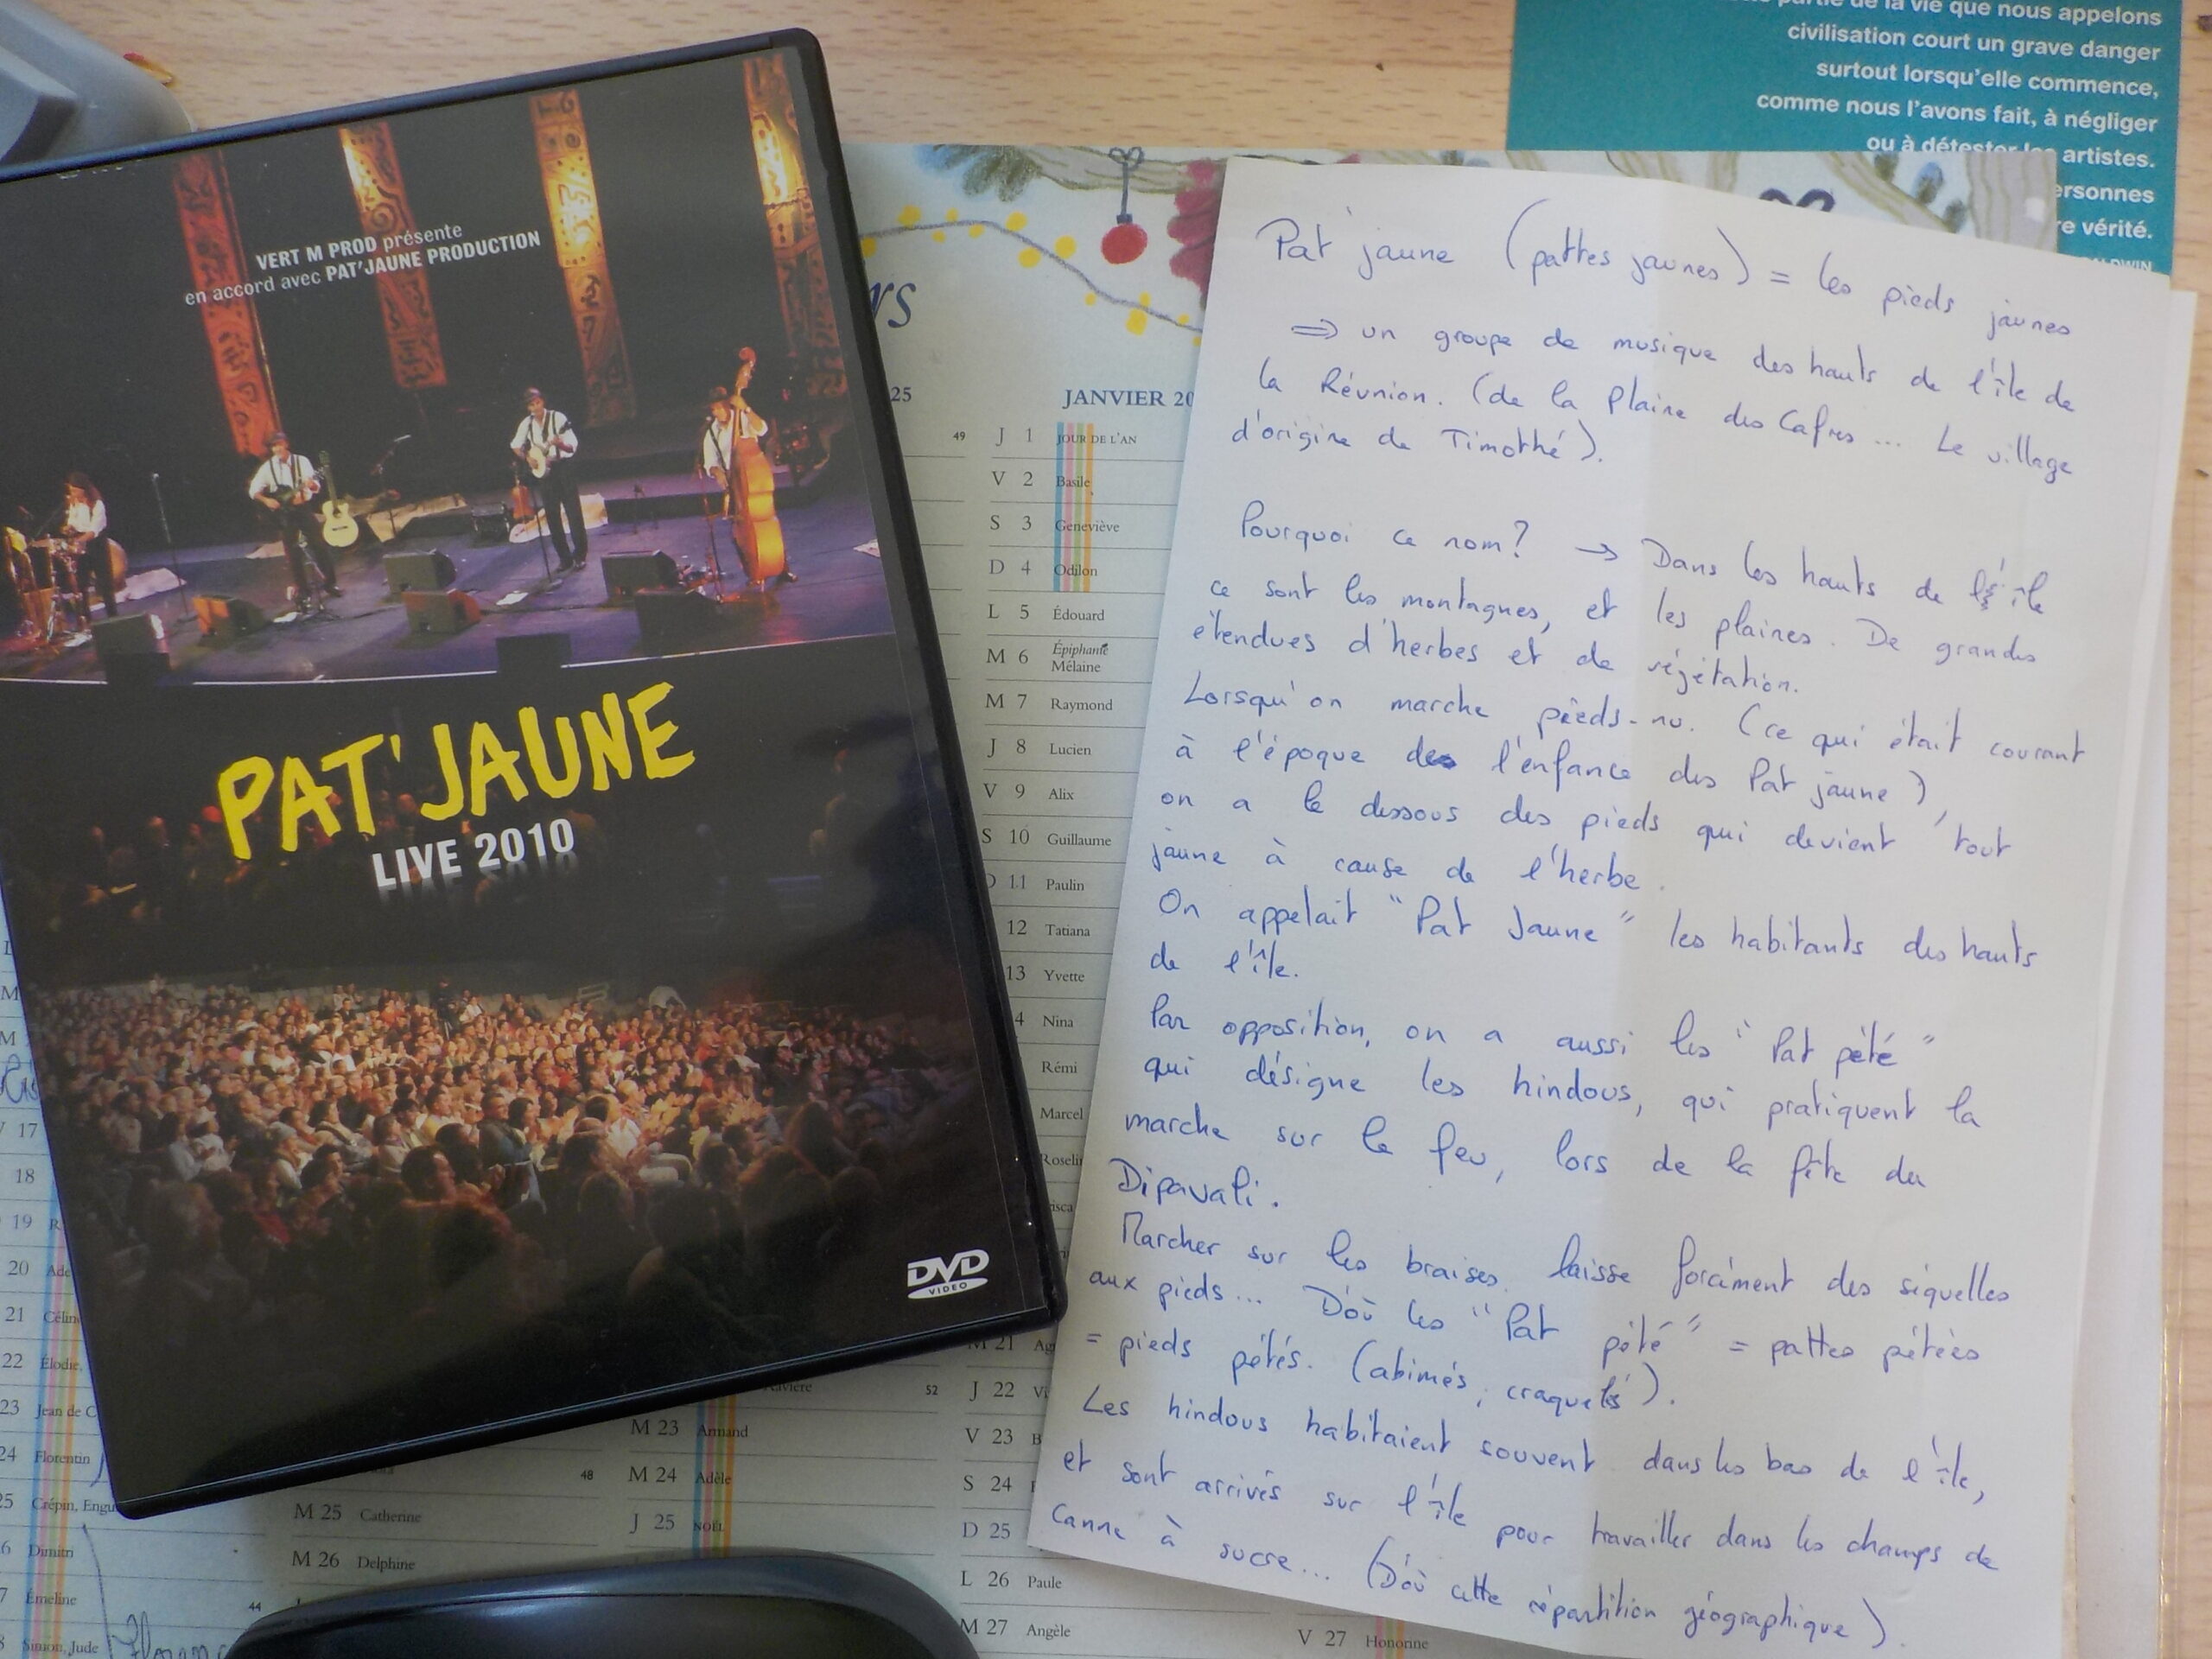 VERT M PROD présente
en accord avec PAT'JAUNE PRODUCTION
PAT'JAUNE
LIVE 2010
DVD
VIDEO
de la vie que nous appelons
civilisation court un grave danger
surtout lorsqu'elle commence,
comme nous l'avons fait, à négliger
ou à détester les artistes.
ersonnes
re vérité.
Pat jaune (pattes jaunes) = les pieds jaunes
⇒ un groupe de musique des hauts de l'île de
la Réunion. (de la Plaine des Cafres... Le village
d'origine de Timothé).
Pourquoi ce nom? → Dans les hauts de l'île
ce sont les montagnes, et les plaines. De grandes
étendues d'herbes et de végétation.
Lorsqu'on marche pieds-nu. (ce qui était courant
à l'époque de l'enfance des Pat jaune),
on a le dessous des pieds qui devient tout
jaune à cause de l'herbe.
On appelait "Pat Jaune" les habitants des hauts
de l'île.
Par opposition, on a aussi les "Pat pété"
qui désigne les hindous, qui pratiquent la
marche sur le feu, lors de la fête du
Dipavali.
Marcher sur les braises laisse forcément des séquelles
aux pieds... D'où les "Pat pété" = pattes pétées
= pieds pétés. (abimés, craquelés).
Les hindous habitaient souvent dans les bas de l'île,
et sont arrivés sur l'île pour travailler dans les champs de
canne à sucre... (D'où cette répartition géographique).
25
JANVIER 20
49
J 1 JOUR DE L'AN
V 2 Basile
S 3 Geneviève
D 4 Odilon
L 5 Édouard
M 6 Épiphanie
Mélaine
M 7 Raymond
J 8 Lucien
V 9 Alix
S 10 Guillaume
D 11 Paulin
12 Tatiana
13 Yvette
4 Nina
Rémi
Marcel
Roselin
M 21 Ag
J 22 Vi
V 23 B
S 24
D 25
L 26 Paule
M 27 Angèle
17
18
19 R
20 Ade
21 Céline
22 Élodie,
23 Jean de C
24 Florentin
25 Crépin, Engu
6 Dimitri
7 Émeline
8 Simon, Jude
44
48
M 25 Catherine
M 26 Delphine
52
M 23 Armand
M 24 Adèle
J 25 NOËL
V 27 Honorine